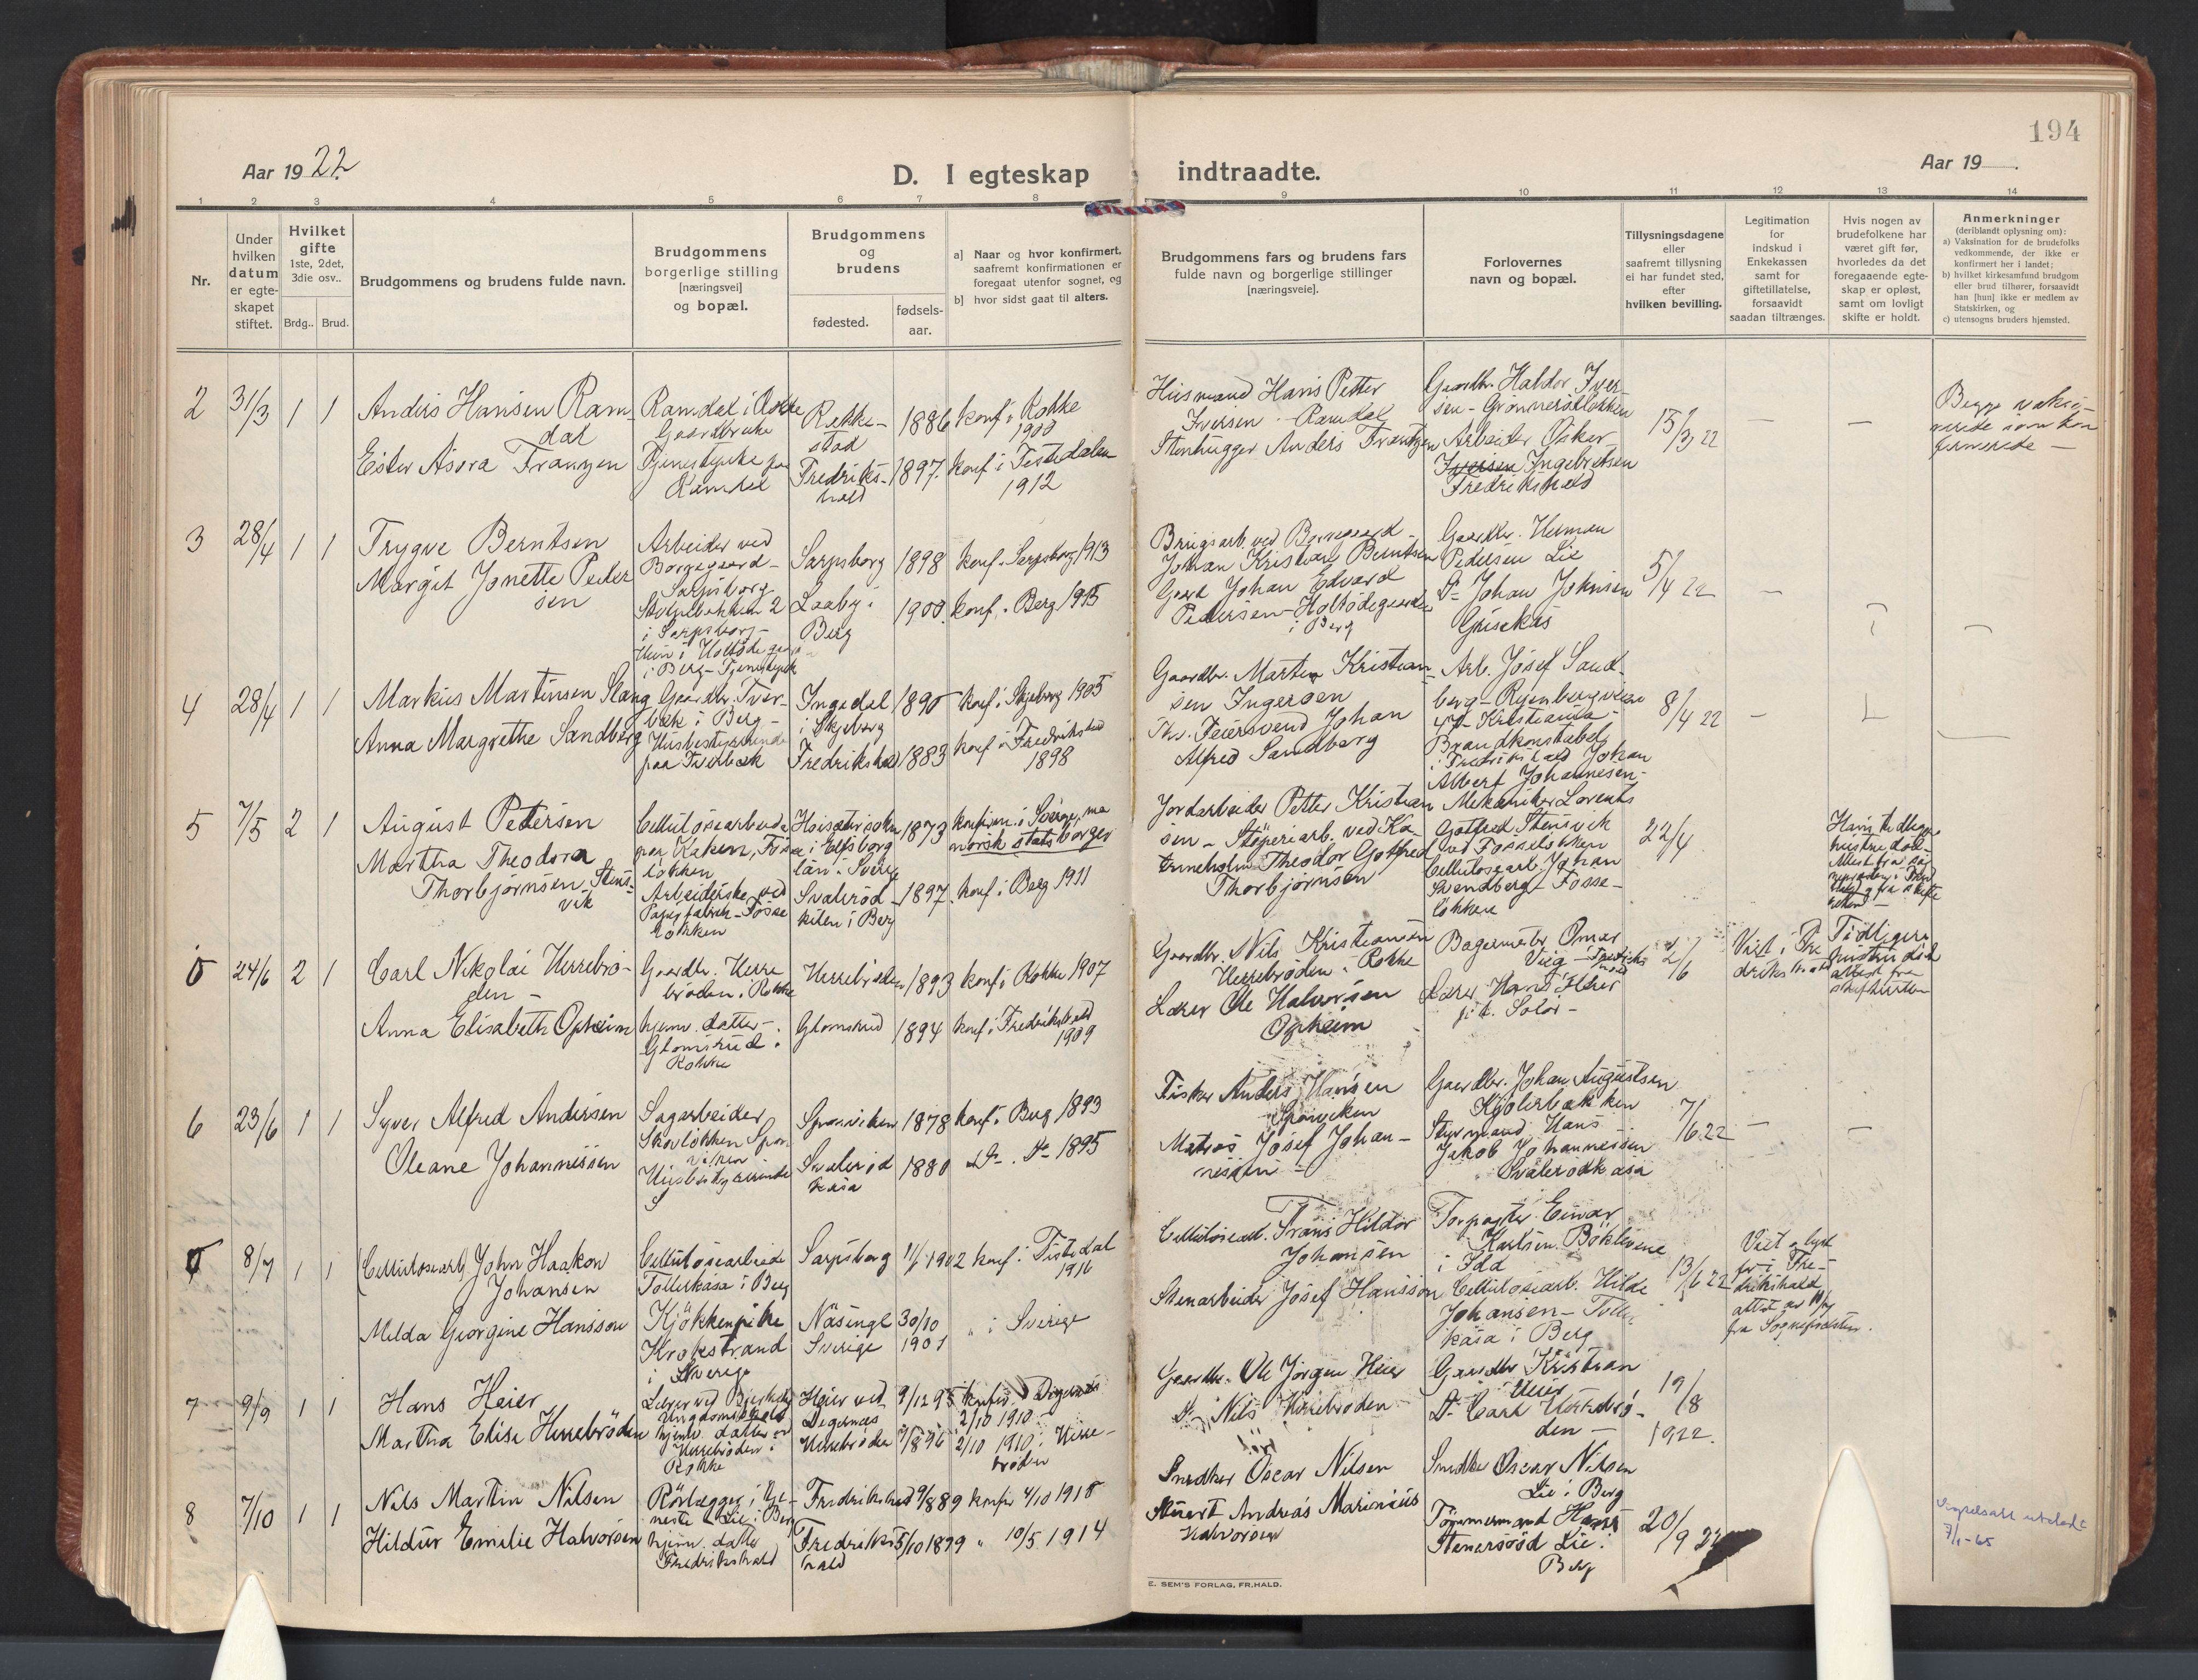 194
Aar 1922.
D. I egteskap
indtraadte.
Aar 19
1 2 3 4 5 6 7 8 9 10 11 12 13 14
Nr.
Under
hvilken
datum
er egte-
skapet
stiftet.
Hvilket
gifte
1ste, 2det,
3die osv..
Brdg.. Brud.
Brudgommens og brudens fulde navn.
Brudgommens
borgerlige stilling
[næringsvei]
og bopæl.
Brudgommens
og
brudens
fødested.
fødsels-
aar.
a] Naar og hvor konfirmert,
saafremt konfirmationen er
foregaat utenfor sognet, og
b] hvor sidst gaat til alters.
Brudgommens fars og brudens fars
fulde navn og borgerlige stillinger
[næringsveie].
Forlovernes
navn og bopæl.
Tillysningsdagene
eller
saafremt tillysning
ei har fundet sted,
efter
hvilken bevilling.
Legitimation
for
indskud i
Enkekassen
samt for
giftetillatelse,
forsaavidt
saadan tiltrænges.
Hvis nogen av
brudefolkene har
været gift før,
hvorledes da det
foregaaende egte-
skap er opløst,
samt om lovligt
skifte er holdt.
Anmerkninger
(deriblandt oplysning om):
a) Vaksination for de brudefolks
vedkommende, der ikke er
konfirmert her i landet;
b) hvilket kirkesamfund brudgom
eller brud tilhører, forsaavidt
han [hun] ikke er medlem av
Statskirken, og
c) utensogns bruders hjemsted.
2 31/3 1 1
Anders Hansen Ram-
dal
Ester Asora Franzen
Ramdal i Rokke
Gaardbruker
Tjenestepike paa
Ramdal
Rakke-
stad
Fredriks-
hald
1886
1897.
konf i Rokke
1900
konf i Tistedalen
1912
Husmand Hans Petter
Iversen - Ramdal
Stenhugger Anders Frantzen
Gaardbr. Haldor Iver-
sen - Grønnerødløkken
Arbeider Oskar
Iversen Ingebretsen
Fredrikshald
15/3 22
— —
Begge vaksi-
nerede som kon
firmerede —
3 28/4 1 1
Trygve Berntsen
Margit Jonette Peder
sen
Arbeider ved
Borregaard -
Sarpsborg
i Sarpsborg -
i Berg - Tjenestepike
Sarpsborg
Laaby i
Berg
1898
1900.
konf. i Sarpsborg 1913
konf. i Berg 1915
Brugsarb. ved Borregaard -
Johan Kristian Berntsen
Gaard Johan Edvard
Pedersen - Holtødegaarden
i Berg
Gaardbr. Herman
Pedersen Lie
Do Johan Johnsen
Grisekås
5/4 22
—
4 28/4 1 1
Markus Martinsen Slang
Anna Margrethe Sandberg
Gaardbr. Tver-
bæk i Berg -
Husbestyrerinde
paa Tverbæk
Ingedal
i Skjeberg
Fredrikshald
1890
1883
konf i Skjeberg 1905
konf i Fredrikshald
1898
Gaardbr. Martin Kristian-
sen Ingerøen
Feiersvend Johan
Alfred Sandberg
Arb. Josef Sand-
berg - Ryenbergveien
Kristiania -
Brandkonstabel
i Fredrikshald Johan
Albert Johannesen -
8/4 22
—
5 7/5 2 1
August Petersen
Martha Theodora
Thorbjørnsen Stens-
vik
Cellulosearbeider
paa Kaken, Fosse
løkken
Arbeiderske ved
Papirfabrik - Fosse
løkken
i Elfsborg
län i Sverige
Svalerød-
kilen i Berg
1873
1897.
konfirm. i Sverige, nu
norsk statsborger
konf i Berg 1911
Jordarbeider Petter Kristian
sen - Støperiarb. ved Ka-
Theodor Gotfred
Thorbjørnsen
Mekaniker Lorents
Gotfred Stensvik
ved Fosseløkken
Cellulosearb. Johan
Svendberg - Fosse-
løkken
22/4
Hans tidligere
hustru død -
0 24/6 2 1
Carl Nikolai Herrebrø-
den -
Anna Elisabeth Opheim
Gaardbr. Herre
brøden i Rokke
hjemv. datter -
Glomsrud i
Rokke
Herrebrøden
Glomsrud
1893
1894
konf i Rokke 1907
konf i Fredrikshald
1909
Gaardbr. Nils Kristiansen
Herrebrøden i Rokke
Lærer Ole Halvorsen
Opheim
Bagermstr. Omar
Viig - Fredriks
hald
Lærer Hans Heier
p. t. Solør -
2/6
Viet i Fre
drikshald
Tidligere
hustru død
attest fra
skifteretten
6 23/6 1 1
Syver Alfred Andersen
Oleane Johannessen
Sagarbeider
Skovløkken Spon-
viken
Husbestyrerinde
Sponviken
Svalerød
kasa
1878
1880
konf i Berg 1893
Do. Do 1895
Fisker Anders Hansen
Sponviken
Matros Josef Johan-
nessen -
Gaardbr. Johan Augustsen
Kjølerbækken
Styrmand Hans
Jakob Johannessen
Svalerødkasa
7/6 22
— —
0 8/7 1 1
(Cellulosearb) John Haakon
Johansen
Milda Georgine Hansson
Cellulosearbeider
Tollerkasa i Berg
Kjøkkenpike
Krokstrand
i Sverige
Sarpsborg
Näsinge
Sverige
11/1 1902
30/10
1901
konf i Tistedal
1916
" i Sverige
Cellulosearb. Frans Hildor
Johansen
Stenarbeider Josef Hansson
Forpagter Einar
Karlsen Bøklevene
i Idd
Cellulosearb. Hilde
Johansen - Toller
kasa i Berg
13/6 22
Viet o lyst
for i Fre-
drikshald
attest av 11/7
fra Sognepresten.
7 9/9 1 1
Hans Heier
Martha Elise Herrebrøden
Lærer ved
Ungdomsskole
hjemv. datter
Herrebrøden i
Rokke
Heier ved
Degernes
Herrebrøden
9/12 95
7/8 96
konfir. i Degernes
2/10 1910 -
2/10 1910 i Herre-
brøden
Gaardbr. Ole Jørgen Heier
Do Nils Herrebrøden
Gaardbr Kristian
Heier
Do Carl Herrebrø-
den -
19/8
1922.
8 7/10 1 1
Nils Martin Nilsen
Hildur Emilie Halvorsen
Rørlægger i tje-
neste Lie i Berg
hjemv. datter
Fredrikshald
Fredrikshald
Fredriks
hald
9/8 89
5/10 1899
konfir 4/10 1910
" 10/5 1914
Snedker Oscar Nilsen
Andreas Marinius
Halvorsen
Snedker Oscar Nilsen
Lie i Berg
Tømmermand Hans
Stenersrød Lie i
Berg
20/9 22
7/1-65
E. SEM'S FORLAG, FR.HALD.